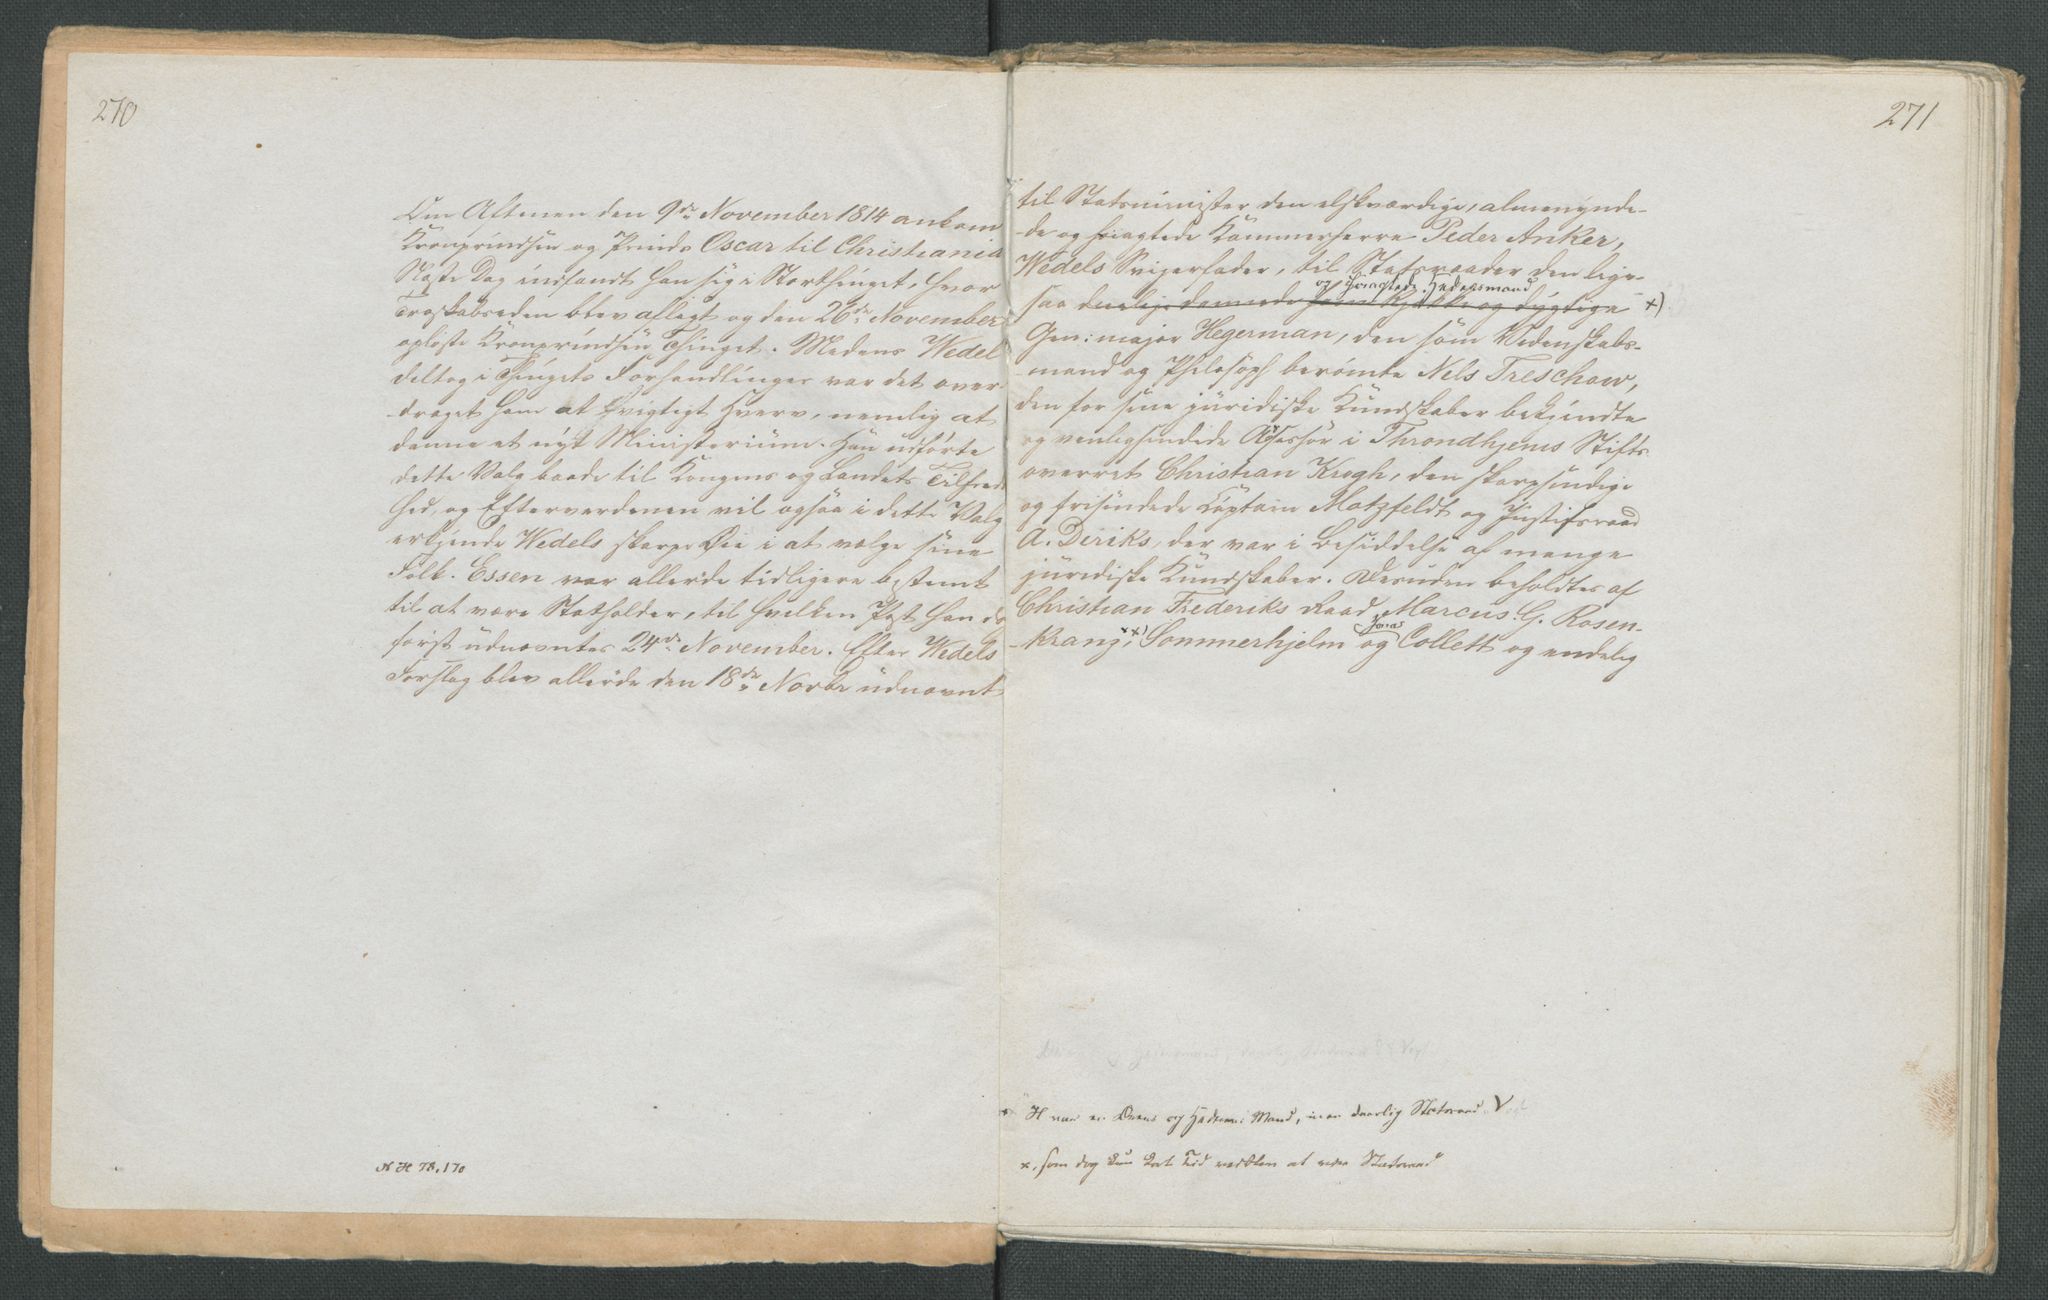 270
Om Aftenen den 9de November 1814 ankom
Kronprindsen og Prinds Oscar til Christiania
Næste Dag indfandt han sig i Storthinget, hvor
Troskabseden blev aflagt og den 26de November
opløste Kronprindsen Thinget. Medens Wedel
deltog i Thingets Forhandlinger var det over-
draget ham et vigtigt Hverv, nemlig at
danne et nyt Ministerium. Han udførte
dette Valg baade til Kongens og Landets Tilfreds
hed, og Efterverdenen vil ogsaa i dette Valg
erkjende Wedels skarpe Øie i at vælge sine
Folk. Essen var allerede tidligere bestemt
til at være Statholder, til hvilken Post han da
først udnævntes 24de November. Efter Wedels
Forslag blev allerede den 18de Novbr udnævnt
N H 78, 170
271
til Statsminister den elskværdige, almeenynde-
de og høiagtede Kammerherre Peder Anker,
Wedels Svigerfader, til Statsraader den lige-
og høiagtede Hædersmand
saa dannede som kjække og dygtige x)
Gen: major Hegerman, den som Videnskabs-
mand og Philosoph berømte Nels Treschow,
den for sine juridiske Kundskaber bekjendte
og venligsindede Assessor i Throndhjems Stifts
overret Christian Krogh, den skarpsindige
og frisindede Captain Motzfeldt og Justitsraad
A. Diriks, der var i Besiddelse af mange
juridiske Kundskaber. Desuden beholdtes af
Christian Frederiks Raad, Marcus G. Rosen-
kranz, xx) Sommerhjelm og Jonas Collett og endelig
x H var en Æres og Hæders Mand, men daarlig Statsraad V
x, som dog kun kort Tid vedblev at være Statsraad